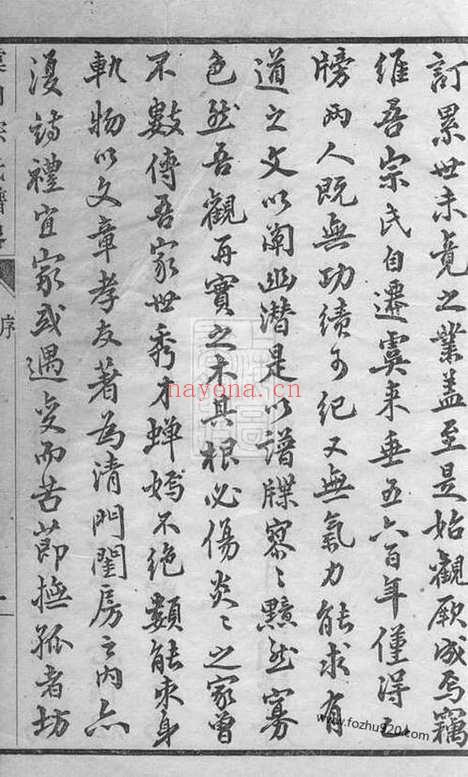 訂累世未竟之業蓋至是始觀厥成焉竊
維吾宗氏自遷虞來垂五六百年僅得乙
牓兩人既無功績可紀又無氣力能求有
道之文以闡幽潛是以譜牒寥〻黯然寡
色然吾觀再實之木其根必傷炎〻之家曾
不數傳吾家世秀才蟬嫣不絕類能束身
軌物以文章孝友著為清門閨房之內亦
漫詩禮宜家或遇變而苦節撫孤者坊
序
nayona.cn
www.fozhu920.com